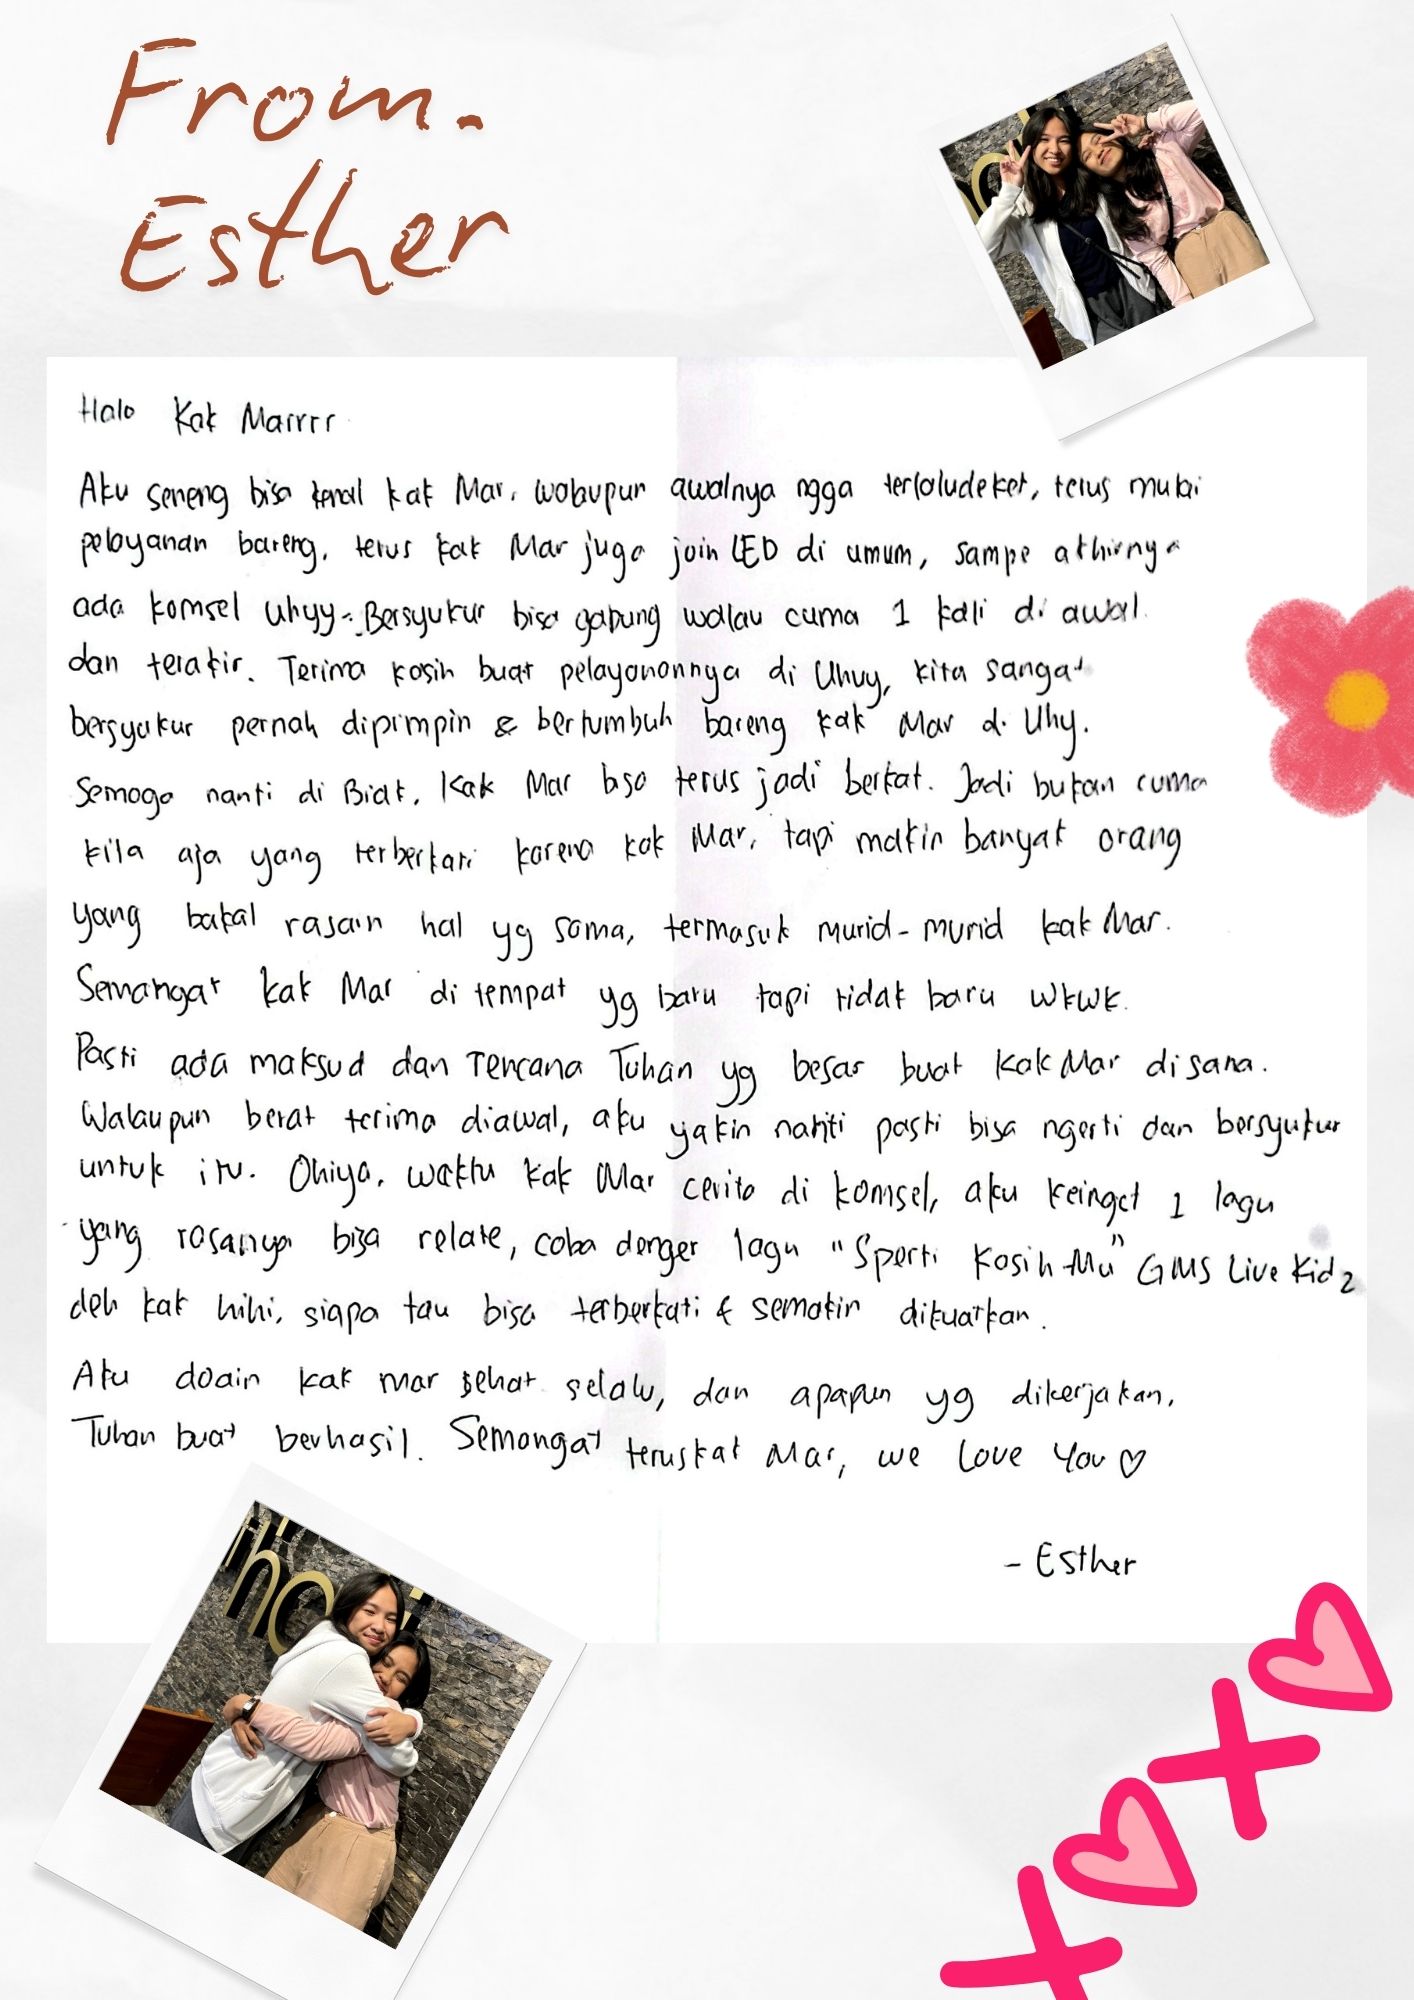 From.
Esther
Halo Kak Marrrr
Aku seneng bisa kenal kak Mar, walaupun awalnya ngga terlaludeket, terus mulai
pelayanan bareng, terus kak Mar juga join LED di umum, sampe akhirnya
ada komsel Uhyy. Bersyukur bisa gabung walau cuma 1 kali di awal
dan terakir. Terima kasih buat pelayanannya di Uhuy, kita sangat
bersyukur pernah dipimpin & bertumbuh bareng kak Mar di Uhy.
Semoga nanti di Biak, Kak Mar bisa terus jadi berkat. Jadi bukan cuma
kita aja yang terberkati karena kak Mar, tapi makin banyak orang
yang bakal rasain hal yg sama, termasuk murid-murid kak Mar.
Semangat kak Mar di tempat yg baru tapi tidak baru wkwk.
Pasti ada maksud dan rencana Tuhan yg besar buat Kak Mar disana.
Walaupun berat terima diawal, aku yakin nanti pasti bisa ngerti dan bersyukur
untuk itu. Ohiya, waktu kak Mar cerita di komsel, aku keinget 1 lagu
yang rasanya bisa relate, coba denger lagu "Sperti Kasih-Mu" GMS Live Kid 2
deh kak hihi, siapa tau bisa terberkati & semakin dikuatkan.
Aku doain kak mar sehat selalu, dan apapun yg dikerjakan,
Tuhan buat berhasil. Semangat teruskak Mar, we Love You ♡
- Esther